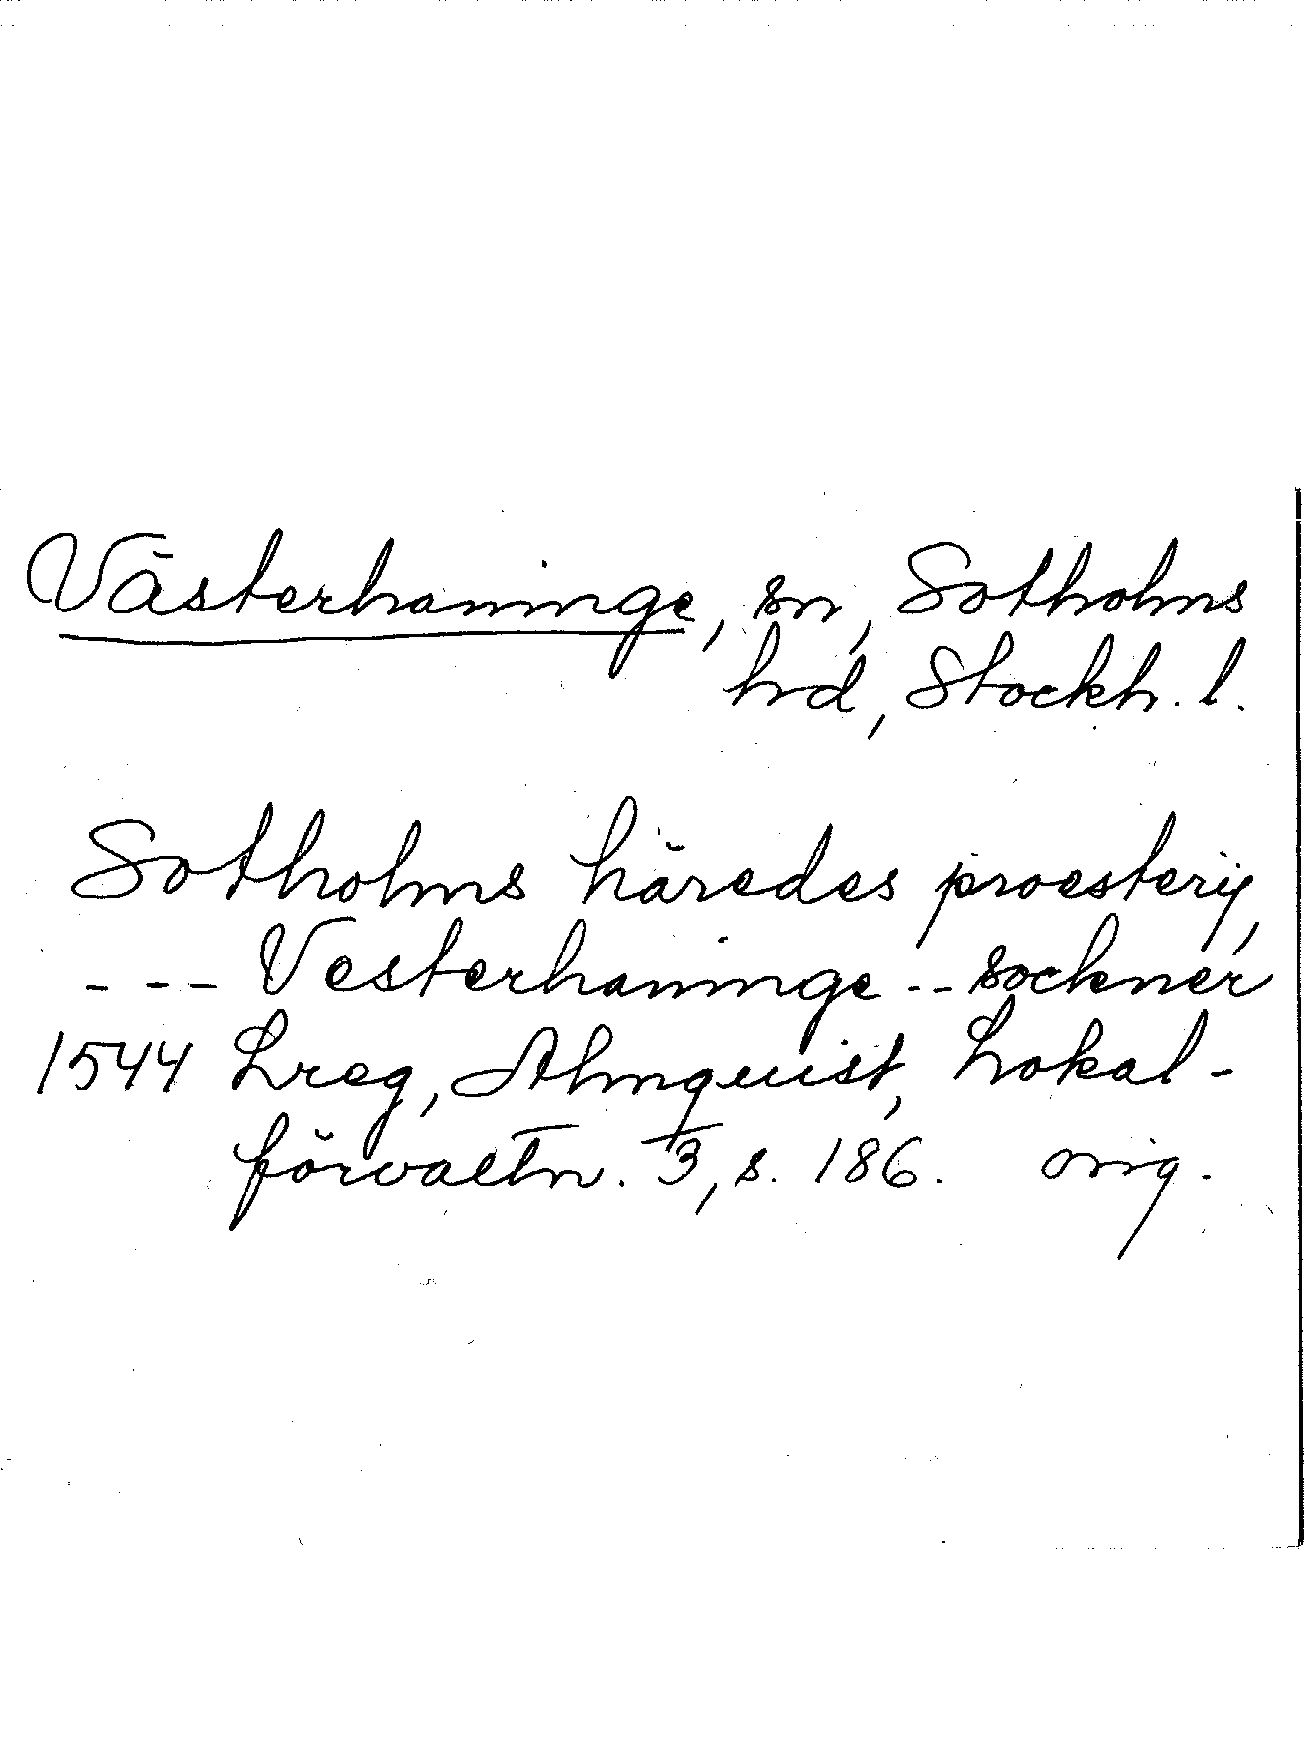 Västerhaninge, sn, Sotholms
hd, Stockh. l.
Sotholms häredes proesterij,
--- Vesterhaninge -- sockner
1544 Lreg, Almquist, Lokal-
förvaltn. 3, s. 186. orig.